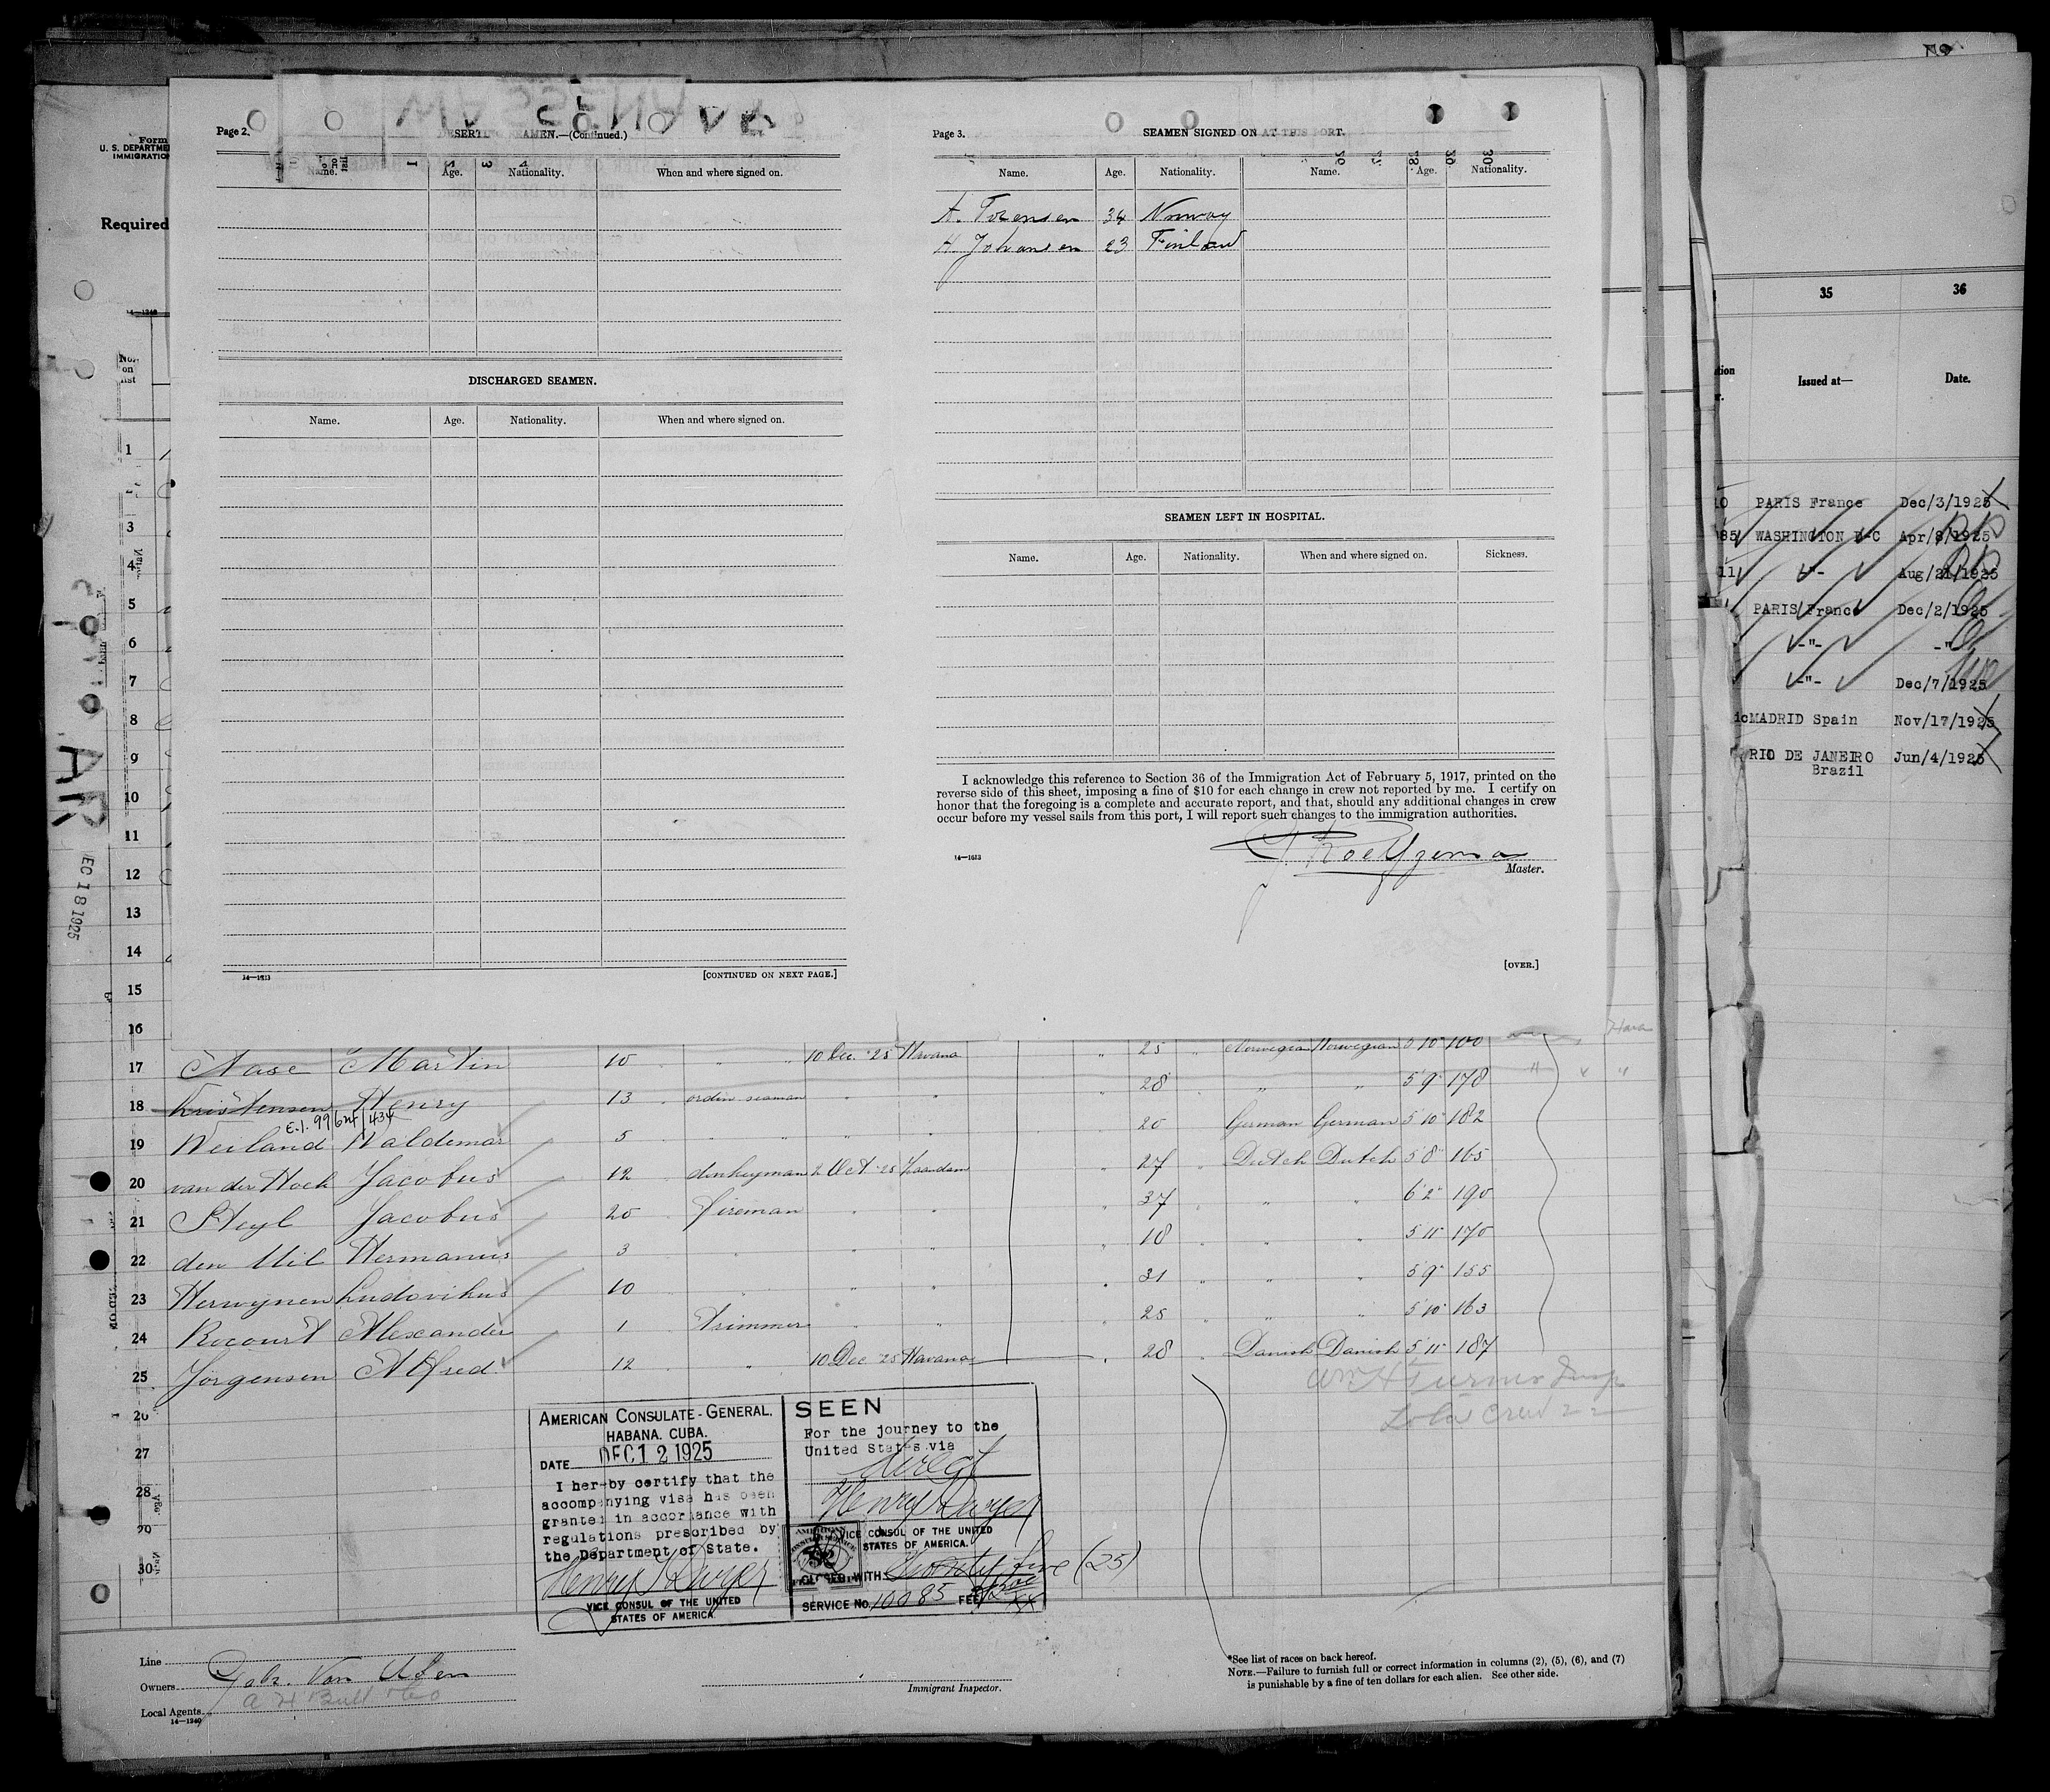 Form
U. S. DEPARTME
IMMIGRATIO
Required
14—1240
No.
on
list
Page 2.
DESERTING SEAMEN.—(Continued.)
Name. Age. Nationality. When and where signed on.
DISCHARGED SEAMEN.
Name. Age. Nationality. When and where signed on.
14—1613
[CONTINUED ON NEXT PAGE.]
Page 3.
SEAMEN SIGNED ON AT THIS PORT.
Name. Age. Nationality. Name. Age. Nationality.
A. Torensen 34 Norway
H. Johansen 23 Finland
SEAMEN LEFT IN HOSPITAL.
Name. Age. Nationality. When and where signed on. Sickness.
I acknowledge this reference to Section 36 of the Immigration Act of February 5, 1917, printed on the
reverse side of this sheet, imposing a fine of $10 for each change in crew not reported by me. I certify on
honor that the foregoing is a complete and accurate report, and that, should any additional changes in crew
occur before my vessel sails from this port, I will report such changes to the immigration authorities.
14—1613
Master.
[OVER.]
35 36
Issued at— Date.
PARIS France Dec/3/1925
WASHINGTON D-C Apr/8/1925
11 -"- Aug/21/1925
PARIS France Dec/2/1925
-"- -"-
-"- Dec/7/1925
MADRID Spain Nov/17/1925
RIO DE JANEIRO Jun/4/1925
Brazil
1
3
4
5
6
7
8
9
10
11
12
13
14
15
16
EC 18 1925
17 Aase Martin 10 " " 10 Dec. '25 Havana " 25 " Norwegian Norwegian 5'10" 160
18 Kristensen Henry 13 ordin seaman " " 28 " " 5'9" 178
19 Weiland Waldemar 5 " " " " 20 German German 5'10" 182
20 van der Hoek Jacobus 12 donkeyman 2 Oct '25 Zaandam " 27 " Dutch Dutch 5'8" 165
21 Steyl Jacobus 20 fireman " " 37 " " " 6'2" 190
22 den Uil Hermanus 3 " " " " 18 " " " 5'11" 170
23 Herwynen Ludovikus 10 " " " " 31 " " " 5'9" 155
24 Rocourt Alexander 1 trimmer " " 25 " " " 5'10" 163
25 Jorgensen Alfred 12 " 10 Dec '25 Havana " 28 " Danish Danish 5'11" 187
26
27
28
29
30
Wm H Turner Insp
Total Crew 22
AMERICAN CONSULATE-GENERAL.
HABANA. CUBA.
DATE DEC 12 1925
I hereby certify that the
accompanying visa has been
granted in accordance with
regulations prescribed by
the Department of State.
VICE CONSUL OF THE UNITED
STATES OF AMERICA.
SEEN
For the journey to the
United States via
direct
VICE CONSUL OF THE UNITED
STATES OF AMERICA.
CLOSED WITH: Twenty five (25)
SERVICE No. 10085 FEE
Line
Owners Gebr. Van Uden
Local Agents A H Bull & Co
14—1240
Immigrant Inspector.
*See list of races on back hereof.
NOTE.—Failure to furnish full or correct information in columns (2), (5), (6), and (7)
is punishable by a fine of ten dollars for each alien. See other side.